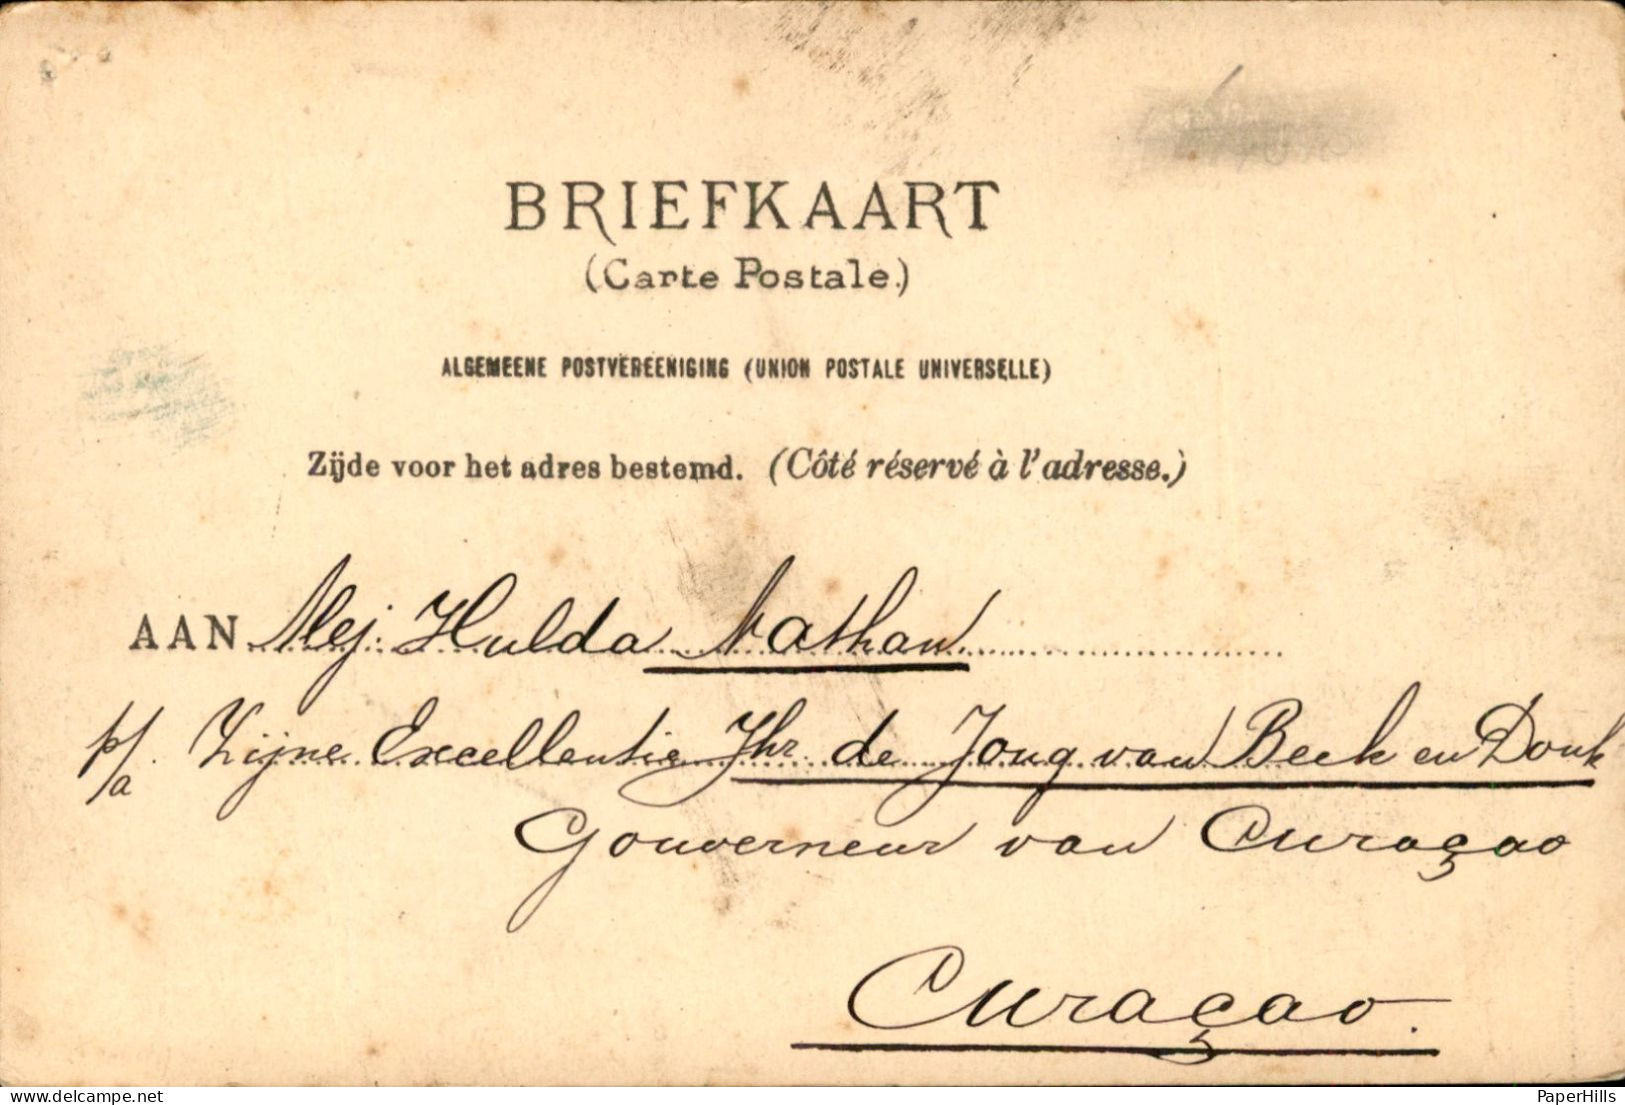 BRIEFKAART
(Carte Postale.)
ALGEMEENE POSTVEREENIGING (UNION POSTALE UNIVERSELLE)
Zijde voor het adres bestemd. (Côté réservé à l'adresse.)
AAN Mej. Hulda Nathan
p/a. Zijne Excellentie Jhr. de Jong van Beek en Donk
Gouverneur van Curaçao
Curaçao.
PaperHills